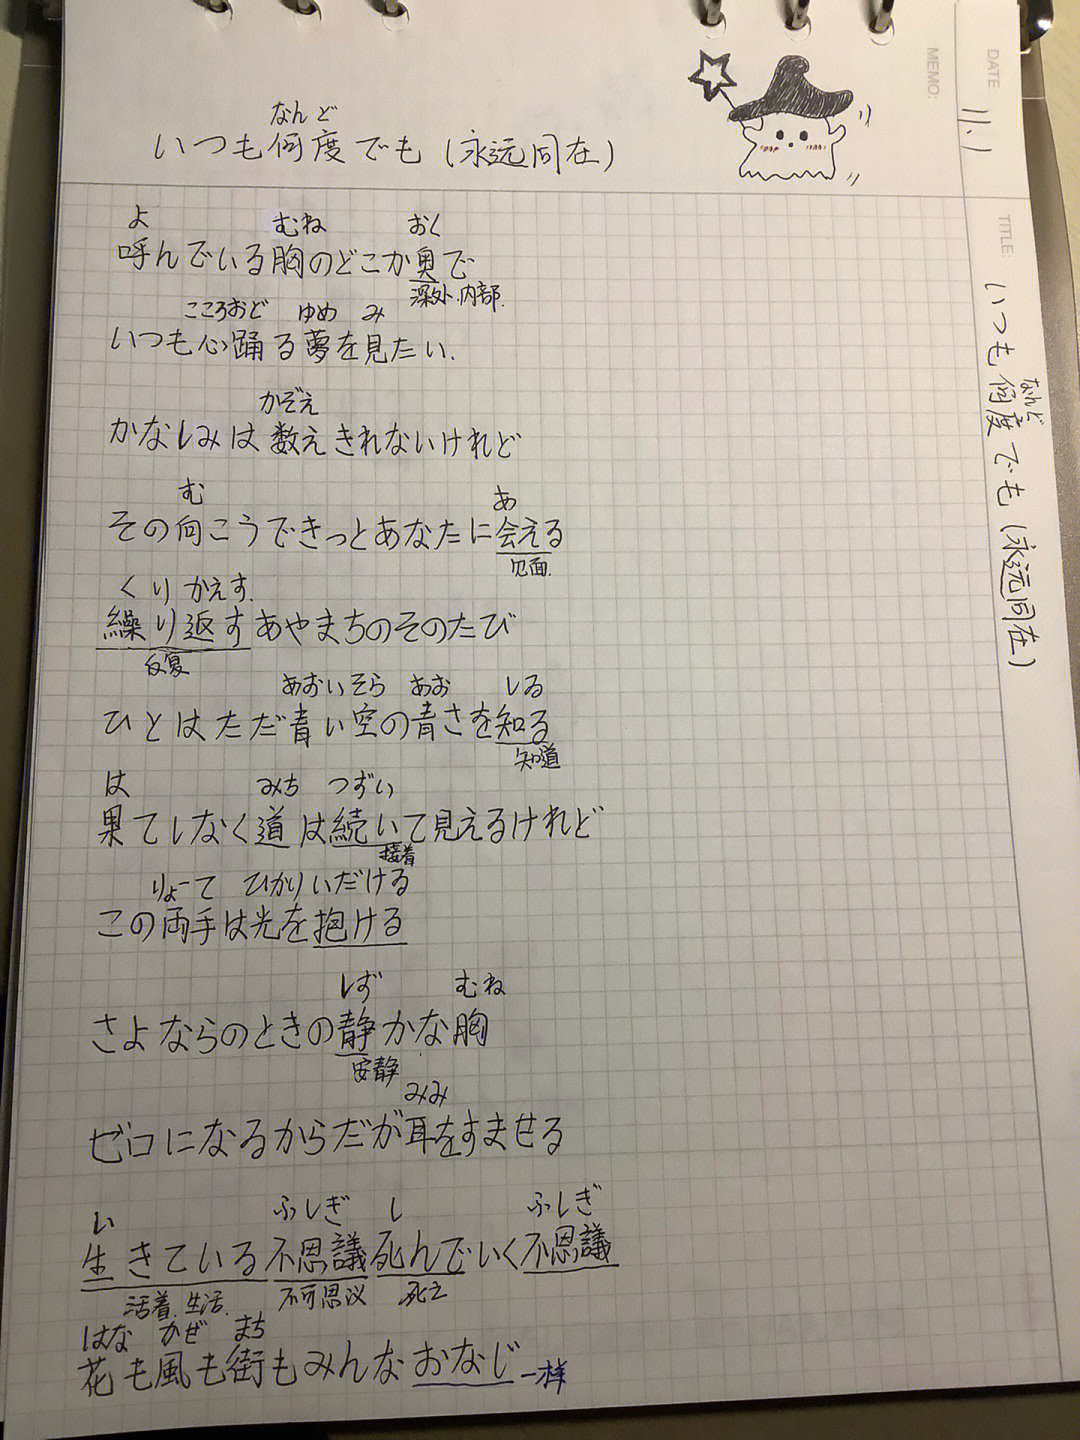 DATE:
11.1
MEMO:
なんど
いつも何度でも(永远同在)
TITLE:
なんど
いつも何度でも(永远同在)
よ むね おく
呼んでいる胸のどこか奥で
深处.内部.
こころおど ゆめ み
いつも心踊る夢を見たい.
かぞえ
かなしみは数えきれないけれど
む あ
その向こうできっとあなたに会える
见面.
くりかえす.
繰り返すあやまちのそのたび
反复
あおいそら あお しる
ひとはただ青い空の青さを知る
知道
は みち つずい
果てしなく道は続いて見えるけれど
接着
りょーて ひかり いだける
この両手は光を抱ける
しず むね
さよならのときの静かな胸
安静
みみ
ゼロになるからだが耳をすませる
い ふしぎ し ふしぎ
生きている不思議死んでいく不思議
活着.生活. 不可思议 死亡
はな かぜ まち
花も風も街もみんなおなじ 一样